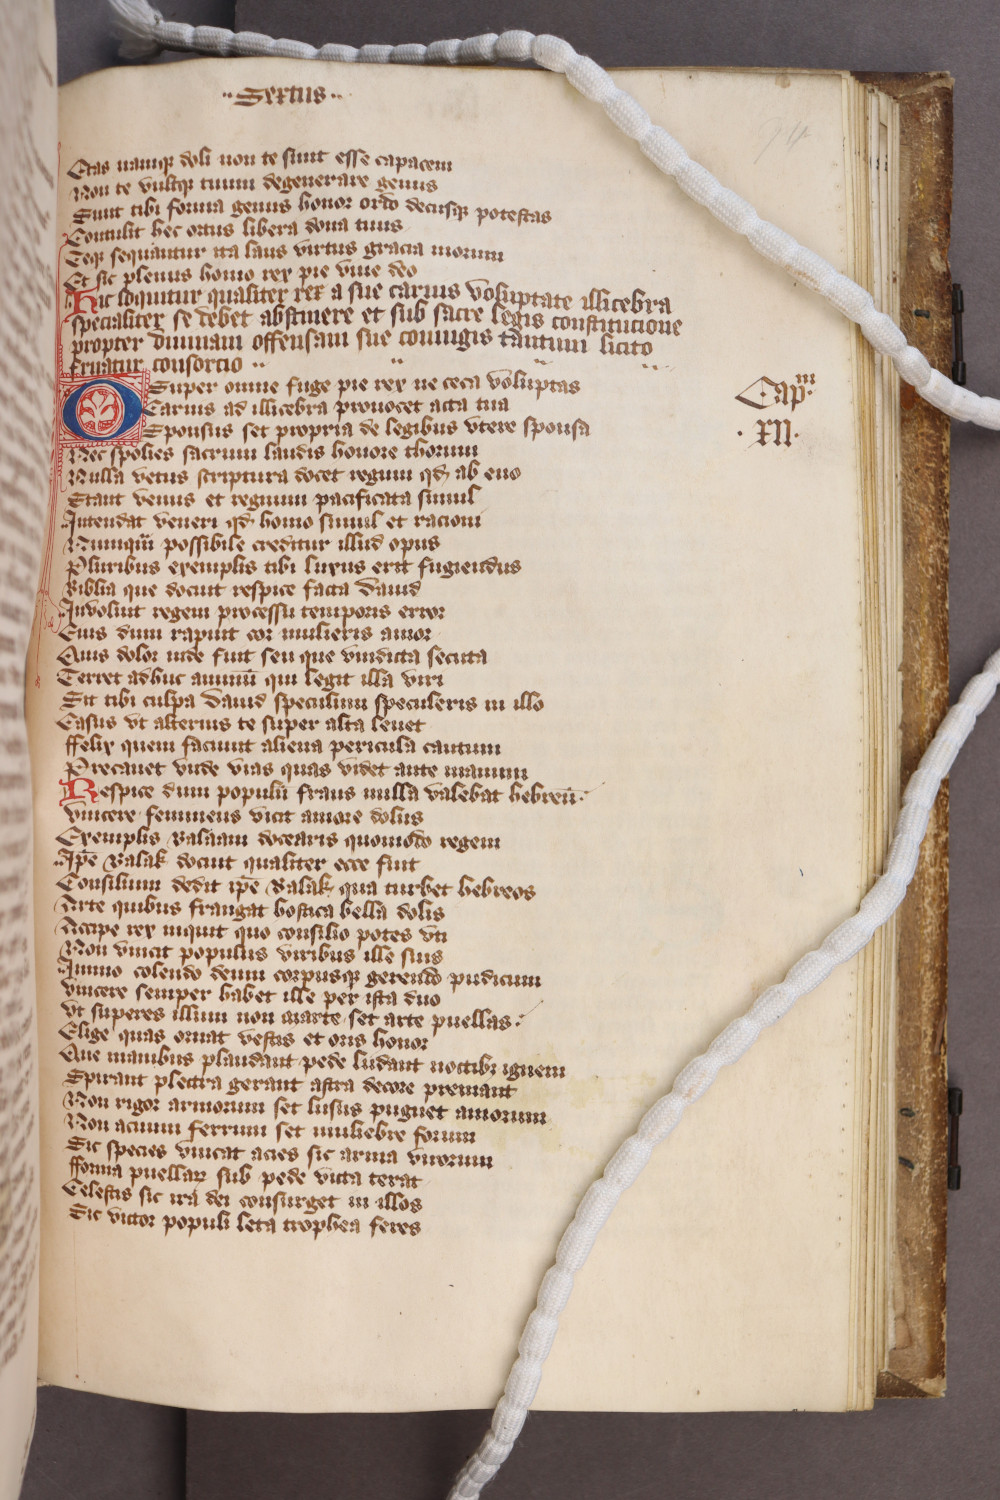 ·· Sextus ··
Etas namqꝫ doli non te sinit esse capacem
Non te vultqꝫ tuum degenerare genus
Sunt tibi forma genus honor ordo decusqꝫ potestas
Contulit hec ortus libera dona tuus
Teqꝫ sequantur ita laus virtus gracia morum
Et sic plenus homo rex pie viue deo
Hic loquitur qualiter rex a sue carnis voluptate illicebra
specialiter se debet abstinere et sub sacre legis constitucione
propter diuinam offensam sue coniugis tantum licito
fruatur consorcio ··
O Super omne fuge pie rex ne ceca voluptas
Carnis ad illicebra prouocet acta tua
Sponsus set propria de legibus vtere sponsa
Nec spolies sacrum laudis honore thorum
Nulla vetus scriptura docet regum qd ab euo
Stant venus et regnum pacificata simul
Intendat veneri qd homo simul et racioni
Numqūi possibile creditur illud opus
Pluribus exemplis tibi luxus erit fugiendus
Biblia que docuit respice facta dauid
Inuoluit regem processu temporis error
Eius dum rapuit cor mulieris amor
Quis dolor inde fuit seu que vindicta secuta
Terret adhuc animū qui legit illa viri
Sit tibi culpa dauid speculum speculeris in illo
Casus vt alterius te super alta leuet
ffelix quem faciunt aliena pericula cautum
Precauet vnde vias quas videt ante manum
Respice dum populū fraus nulla valebat hebreū·
vincere femineus vicit amore dolus
Exemplis Balaam docearis quomodo regem
Ipē Balak docuit qualiter ecce fuit
Consilium dedit ipē Balak qua turbet hebreos
Arte quibus frangat hostica bella dolis
Accipe rex inquit quo consilio potes vti
Non vincit populus viribus ille suis
Immo colendo deum corpusqꝫ gerendo pudicum
vincere semper habet ille per ista duo
vt superes illum non marte set arte puellas·
Elige quas ornat vestis et oris honor
Que manibus plaudant pede ludant noctibꝫ ignem
Spirant plectra gerant astra decore premant
Non rigor armorum set lusus pugnet amorum
Non acuum ferrum set muliebre forum
Sic species vincat acies sic arma virorum
fforma puellaꝝ sub pede victa terat
Celestis sic ira dei consurget in illos
Sic victor populi leta trophea feres
Capm·
·XII·